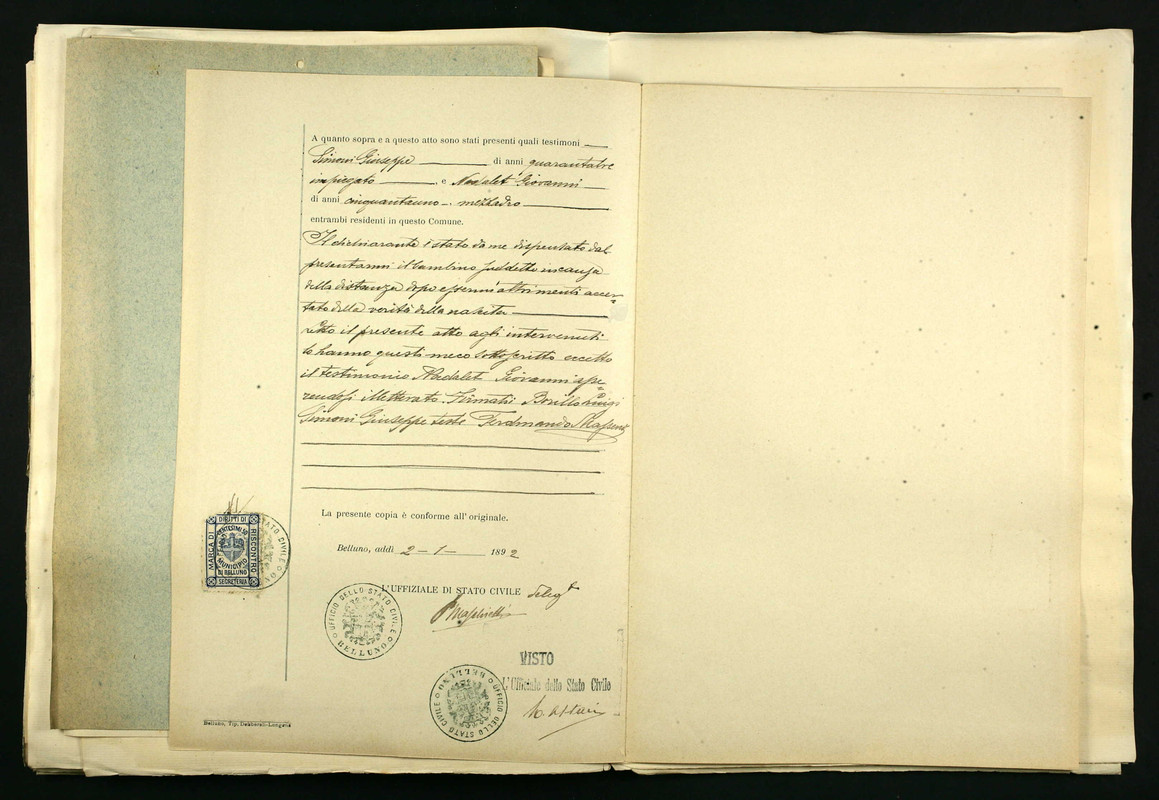 A quanto sopra e a questo atto sono stati presenti quali testimoni
Simoni Giuseppe di anni quarantatre
impiegato, e Nadalet Giovanni
di anni cinquantauno, mezzadro
entrambi residenti in questo Comune.
Il dichiarante è stato da me dispensato dal
presentarmi il bambino suddetto in causa
della distanza dopo essermi altrimenti accer=
tato della verità della nascita
Letto il presente atto agli intervenuti
lo hanno questi meco sottoscritto eccetto
il testimonio Nadalet Giovanni spe=
rendosi illetterato. Firmati Luigi
Simoni Giuseppe teste Ferdinando
La presente copia è conforme all'originale.
Belluno, addì 2 - 1 - 1892
L'UFFIZIALE DI STATO CIVILE deleg^t
UFFICIO DELLO STATO CIVILE
BELLUNO
DIRITTI DI
MARCA DI
RISCONTRO
CENTESIMI 50
MUNICIPIO
DI BELLUNO
SEGRETERIA
STATO CIVILE
VISTO
L'Ufficiale dello Stato Civile
UFFICIO DELLO STATO CIVILE
BELLUNO
Belluno, Tip. Deliberali-Longana